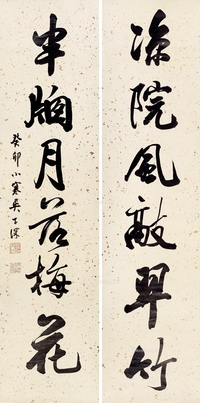 凉院風敲翠竹
半胸月落梅花
癸卯小寒吳士深